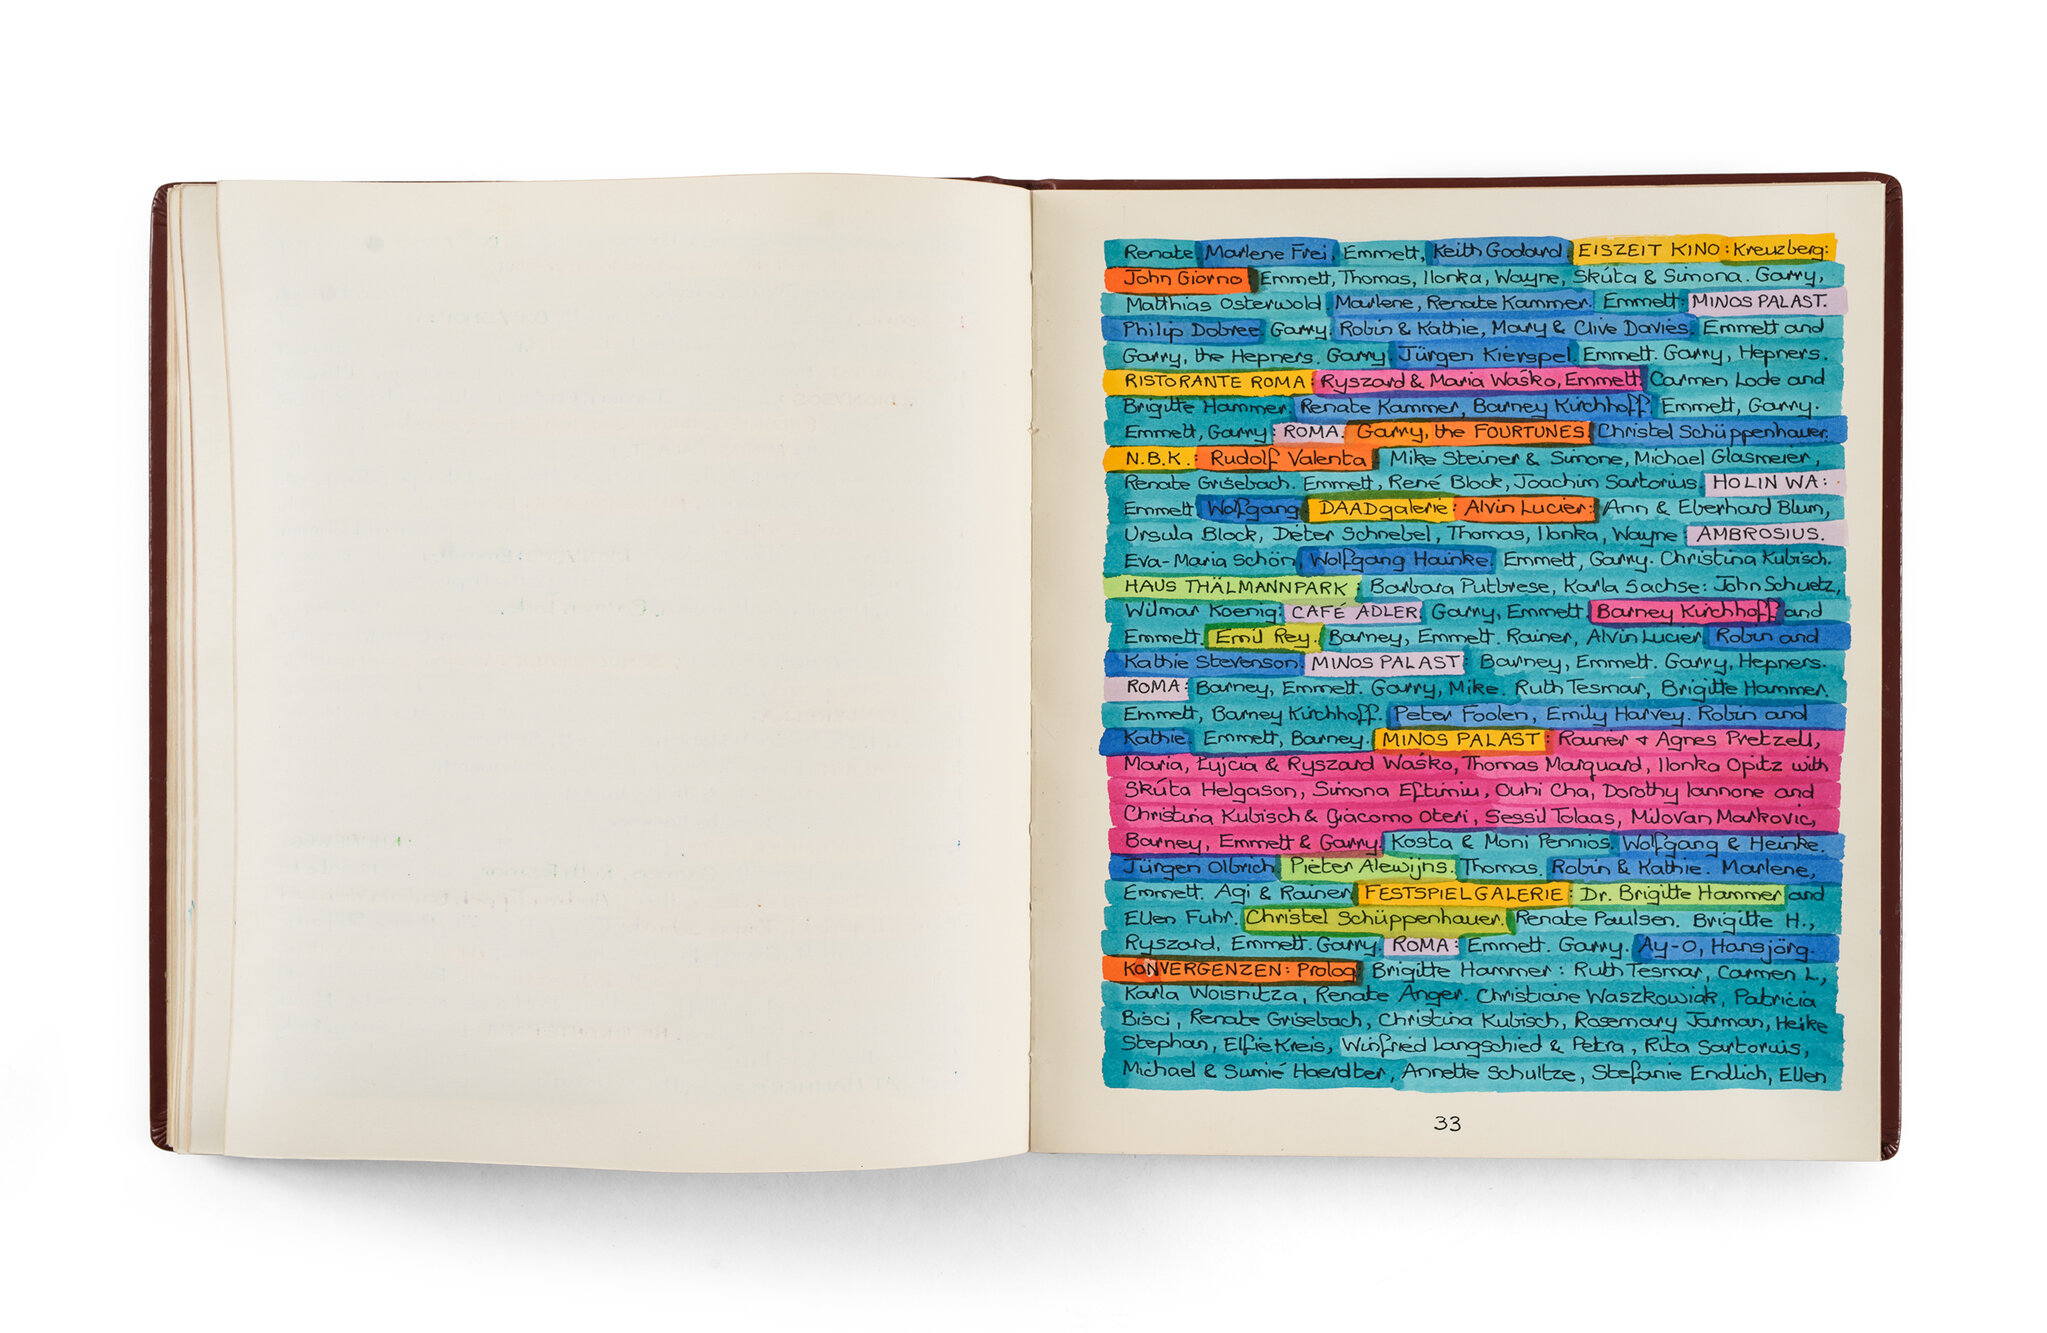 Renate Marlene Frei, Emmett, Keith Godard. EISZEIT KINO: Kreuzberg:
John Giorno Emmett, Thomas, Ilonka, Wayne, Skúta & Simona. Garry,
Matthias Osterwold Marlene, Renate Kammer. Emmett: MINOS PALAST.
Philip Dobree. Garry. Robin & Kathie, Mary & Clive Davies. Emmett and
Garry, the Hepners. Garry. Jürgen Kierspel. Emmett. Garry, Hepners.
RISTORANTE ROMA: Ryszard & Maria Waśko, Emmett. Carmen Lode and
Brigitte Hammer. Renate Kammer, Barney Kirchhoff. Emmett, Garry.
Emmett, Garry: ROMA. Garry, the FOURTUNES. Christel Schüppenhauer.
N.B.K.: Rudolf Valenta Mike Steiner & Simone, Michael Glasmeier,
Renate Grisebach. Emmett, René Block, Joachim Sartorius. HOLIN WA:
Emmett Wolfgang DAADgalerie: Alvin Lucier: Ann & Eberhard Blum,
Ursula Block, Dieter Schnebel, Thomas, Ilonka, Wayne AMBROSIUS.
Eva-Maria Schön, Wolfgang Hainke. Emmett, Garry. Christina Kubisch.
HAUS THÄLMANNPARK Barbara Putbrese, Karla Sachse: John Schuetz,
Wilmar Koenig: CAFÉ ADLER. Garry, Emmett. Barney Kirchhoff and
Emmett. Emil Rey. Barney, Emmett. Rainer, Alvin Lucier. Robin and
Kathie Stevenson. MINOS PALAST: Barney, Emmett. Garry, Hepners.
ROMA: Barney, Emmett. Garry, Mike. Ruth Tesmar, Brigitte Hammer.
Emmett, Barney Kirchhoff. Peter Foolen, Emily Harvey. Robin and
Kathie. Emmett, Barney. MINOS PALAST: Rainer + Agnes Pretzell,
Maria, Łujcia & Ryszard Waśko, Thomas Marquard, Ilonka Opitz with
Skúta Helgason, Simona Eftimiu, Ouhi Cha, Dorothy Iannone and
Christina Kubisch & Giacomo Oteri, Sessil Tolaas, Milovan Markovic,
Barney, Emmett & Garry. Kosta & Moni Pennios. Wolfgang & Heinke.
Jürgen Olbrich Pieter Alewijns. Thomas. Robin & Kathie. Marlene,
Emmett. Agi & Rainer FESTSPIELGALERIE: Dr. Brigitte Hammer and
Ellen Fuhr. Christel Schüppenhauer. Renate Paulsen. Brigitte H.,
Ryszard, Emmett. Garry. ROMA: Emmett. Garry. Ay-O, Hansjörg.
KONVERGENZEN: Prolog Brigitte Hammer: Ruth Tesmar, Carmen L,
Karla Woisnitza, Renate Anger. Christiane Waszkowiak, Patricia
Bisci, Renate Grisebach, Christina Kubisch, Rosemary Jarman, Heike
Stephan, Elfie Kreis, Winfried Langschied & Petra, Rita Sartorius,
Michael & Sumié Haerdter, Annette Schultze, Stefanie Endlich, Ellen
33